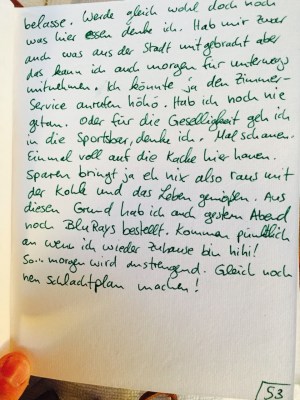 belasse. Werde gleich wohl doch noch
was hier essen denke ich. Hab mir zwar
auch was aus der Stadt mitgebracht aber
das kann ich auch morgen für unterwegs
mitnehmen. Ich könnte ja den Zimmer-
Service anrufen höhö. Hab ich noch nie
getan. Oder für die Geselligkeit geh ich
in die Sportsbar, denke ich. Mal schauen.
Einmal voll auf die Kacke hier hauen.
Sparen bringt ja eh nix also raus mit
der Kohle und das Leben genießen. Aus
diesen Grund hab ich auch gestern Abend
noch BluRays bestellt. Kommen pünktlich
an wenn ich wieder Zuhause bin hihi!
So... morgen wird anstrengend. Gleich noch
nen Schlachtplan machen!
53